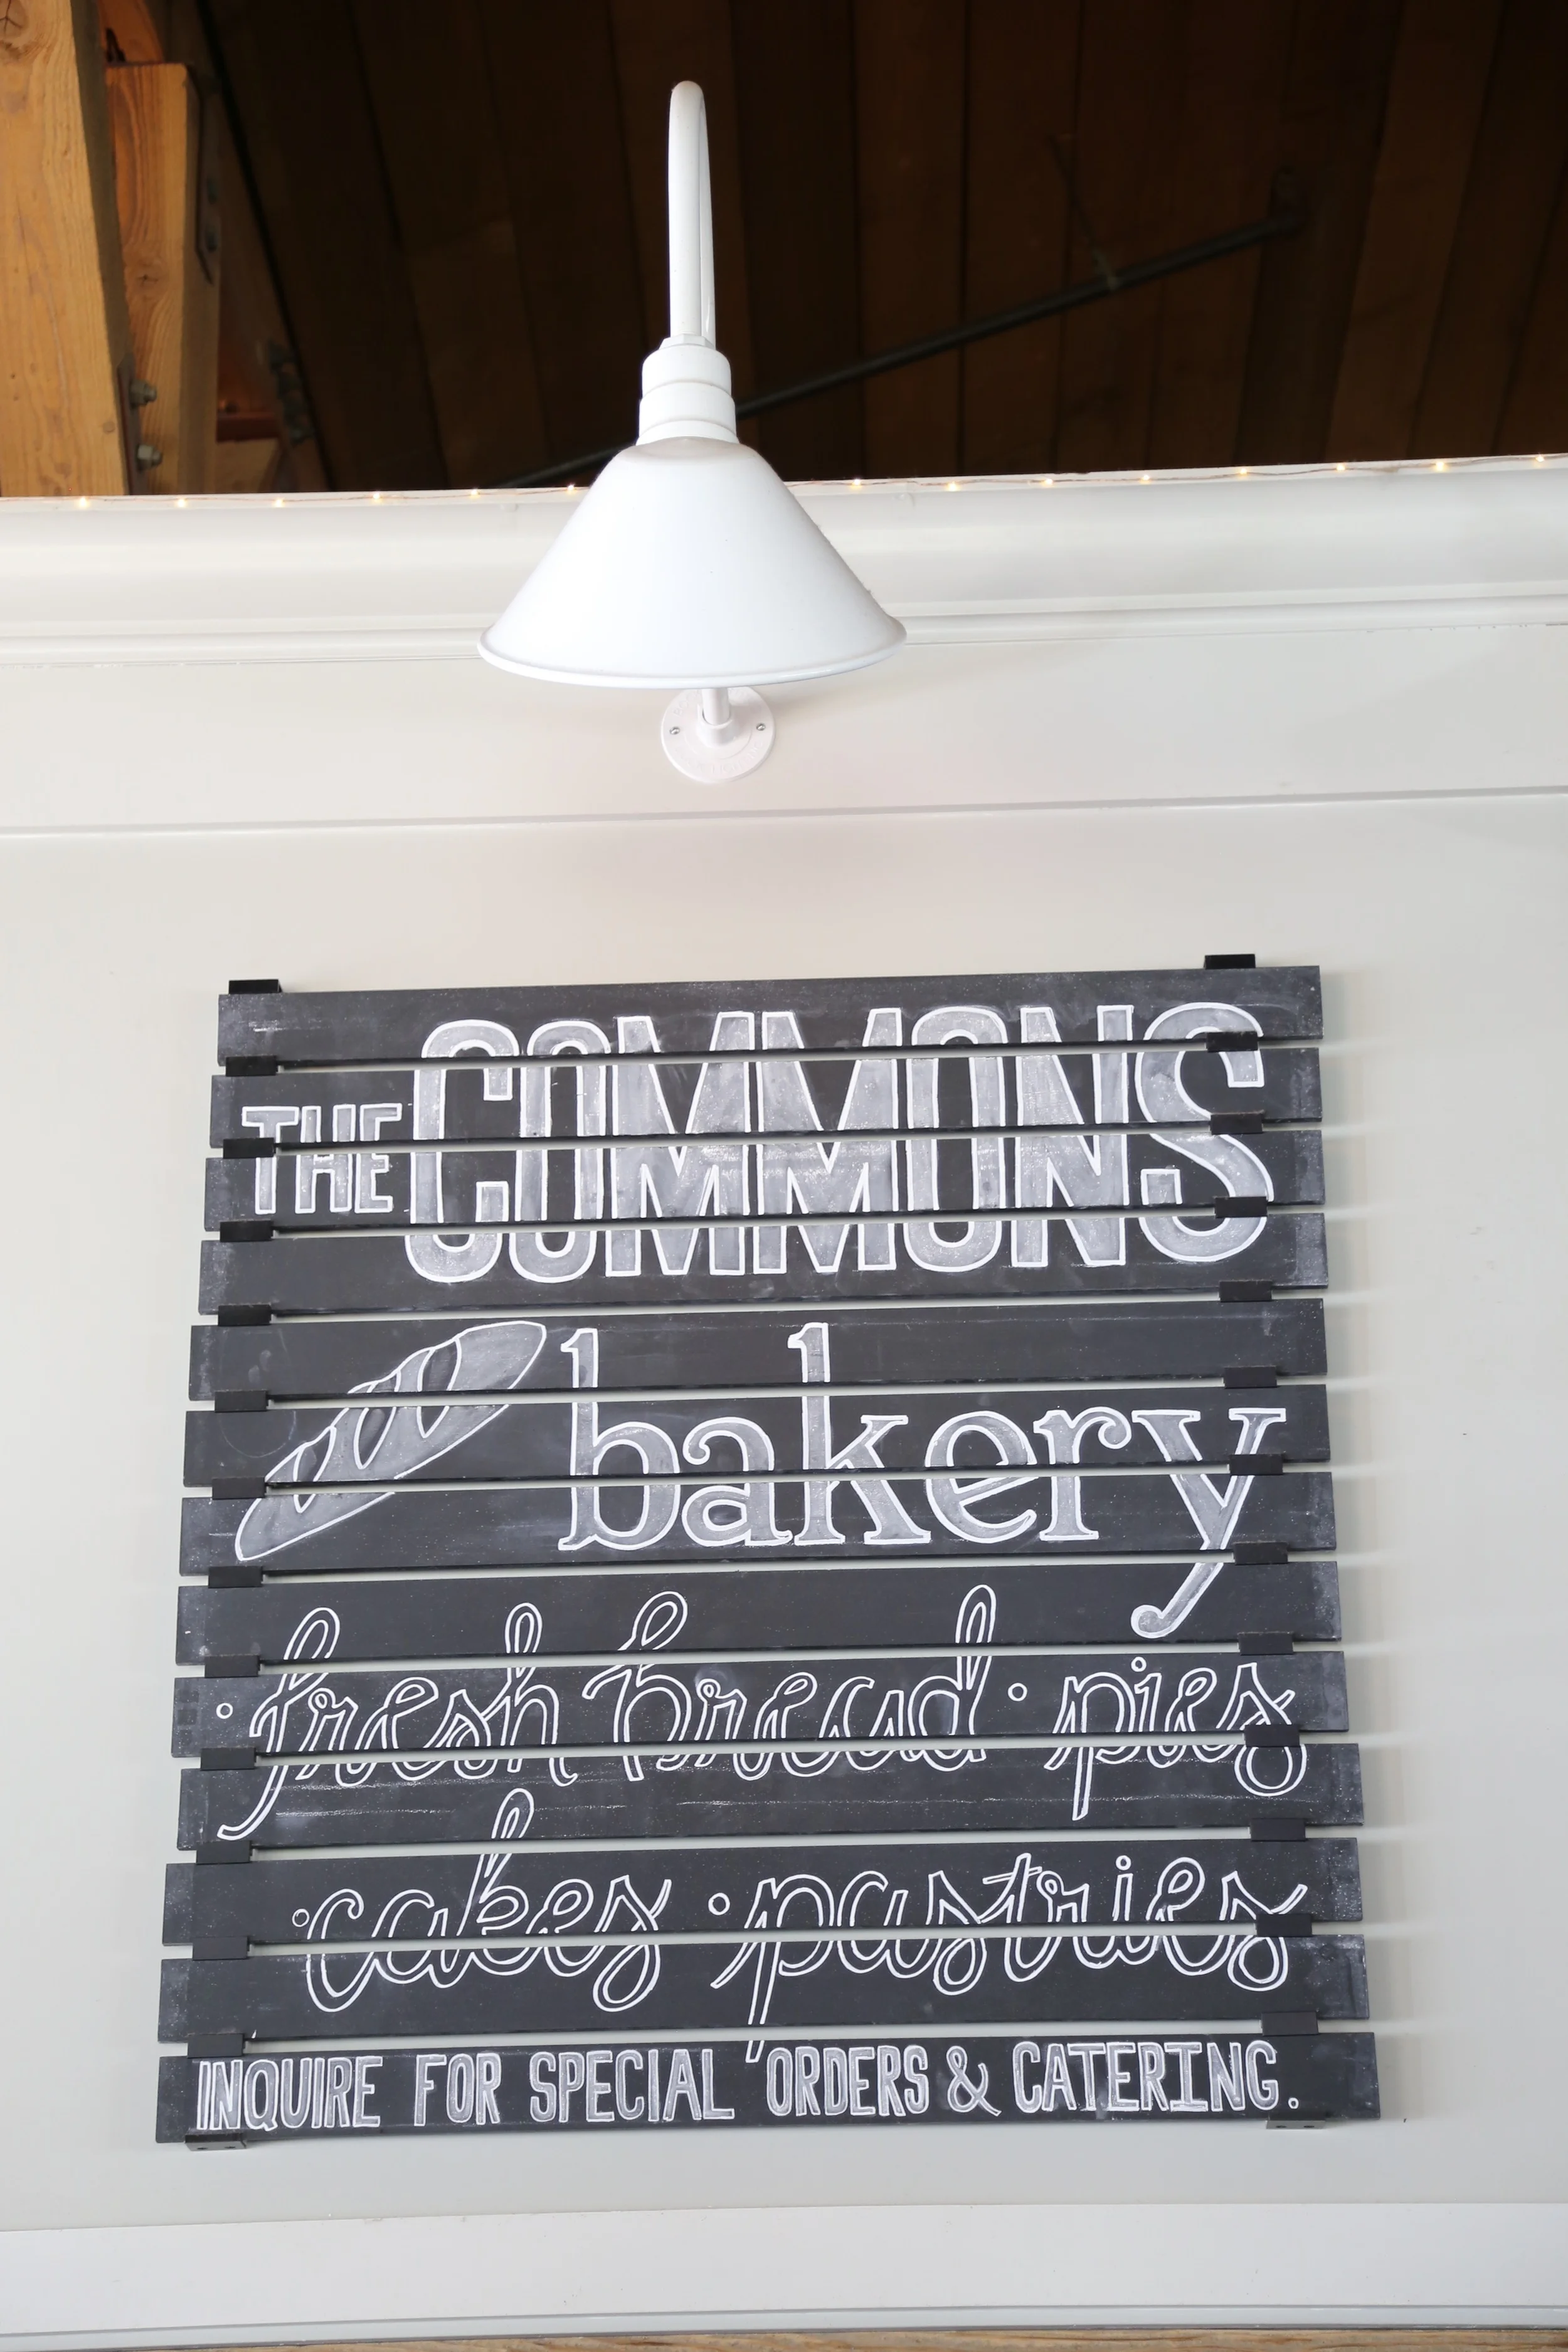 THE COMMONS
bakery
· fresh bread · pies
· cakes · pastries
INQUIRE FOR SPECIAL ORDERS & CATERING.